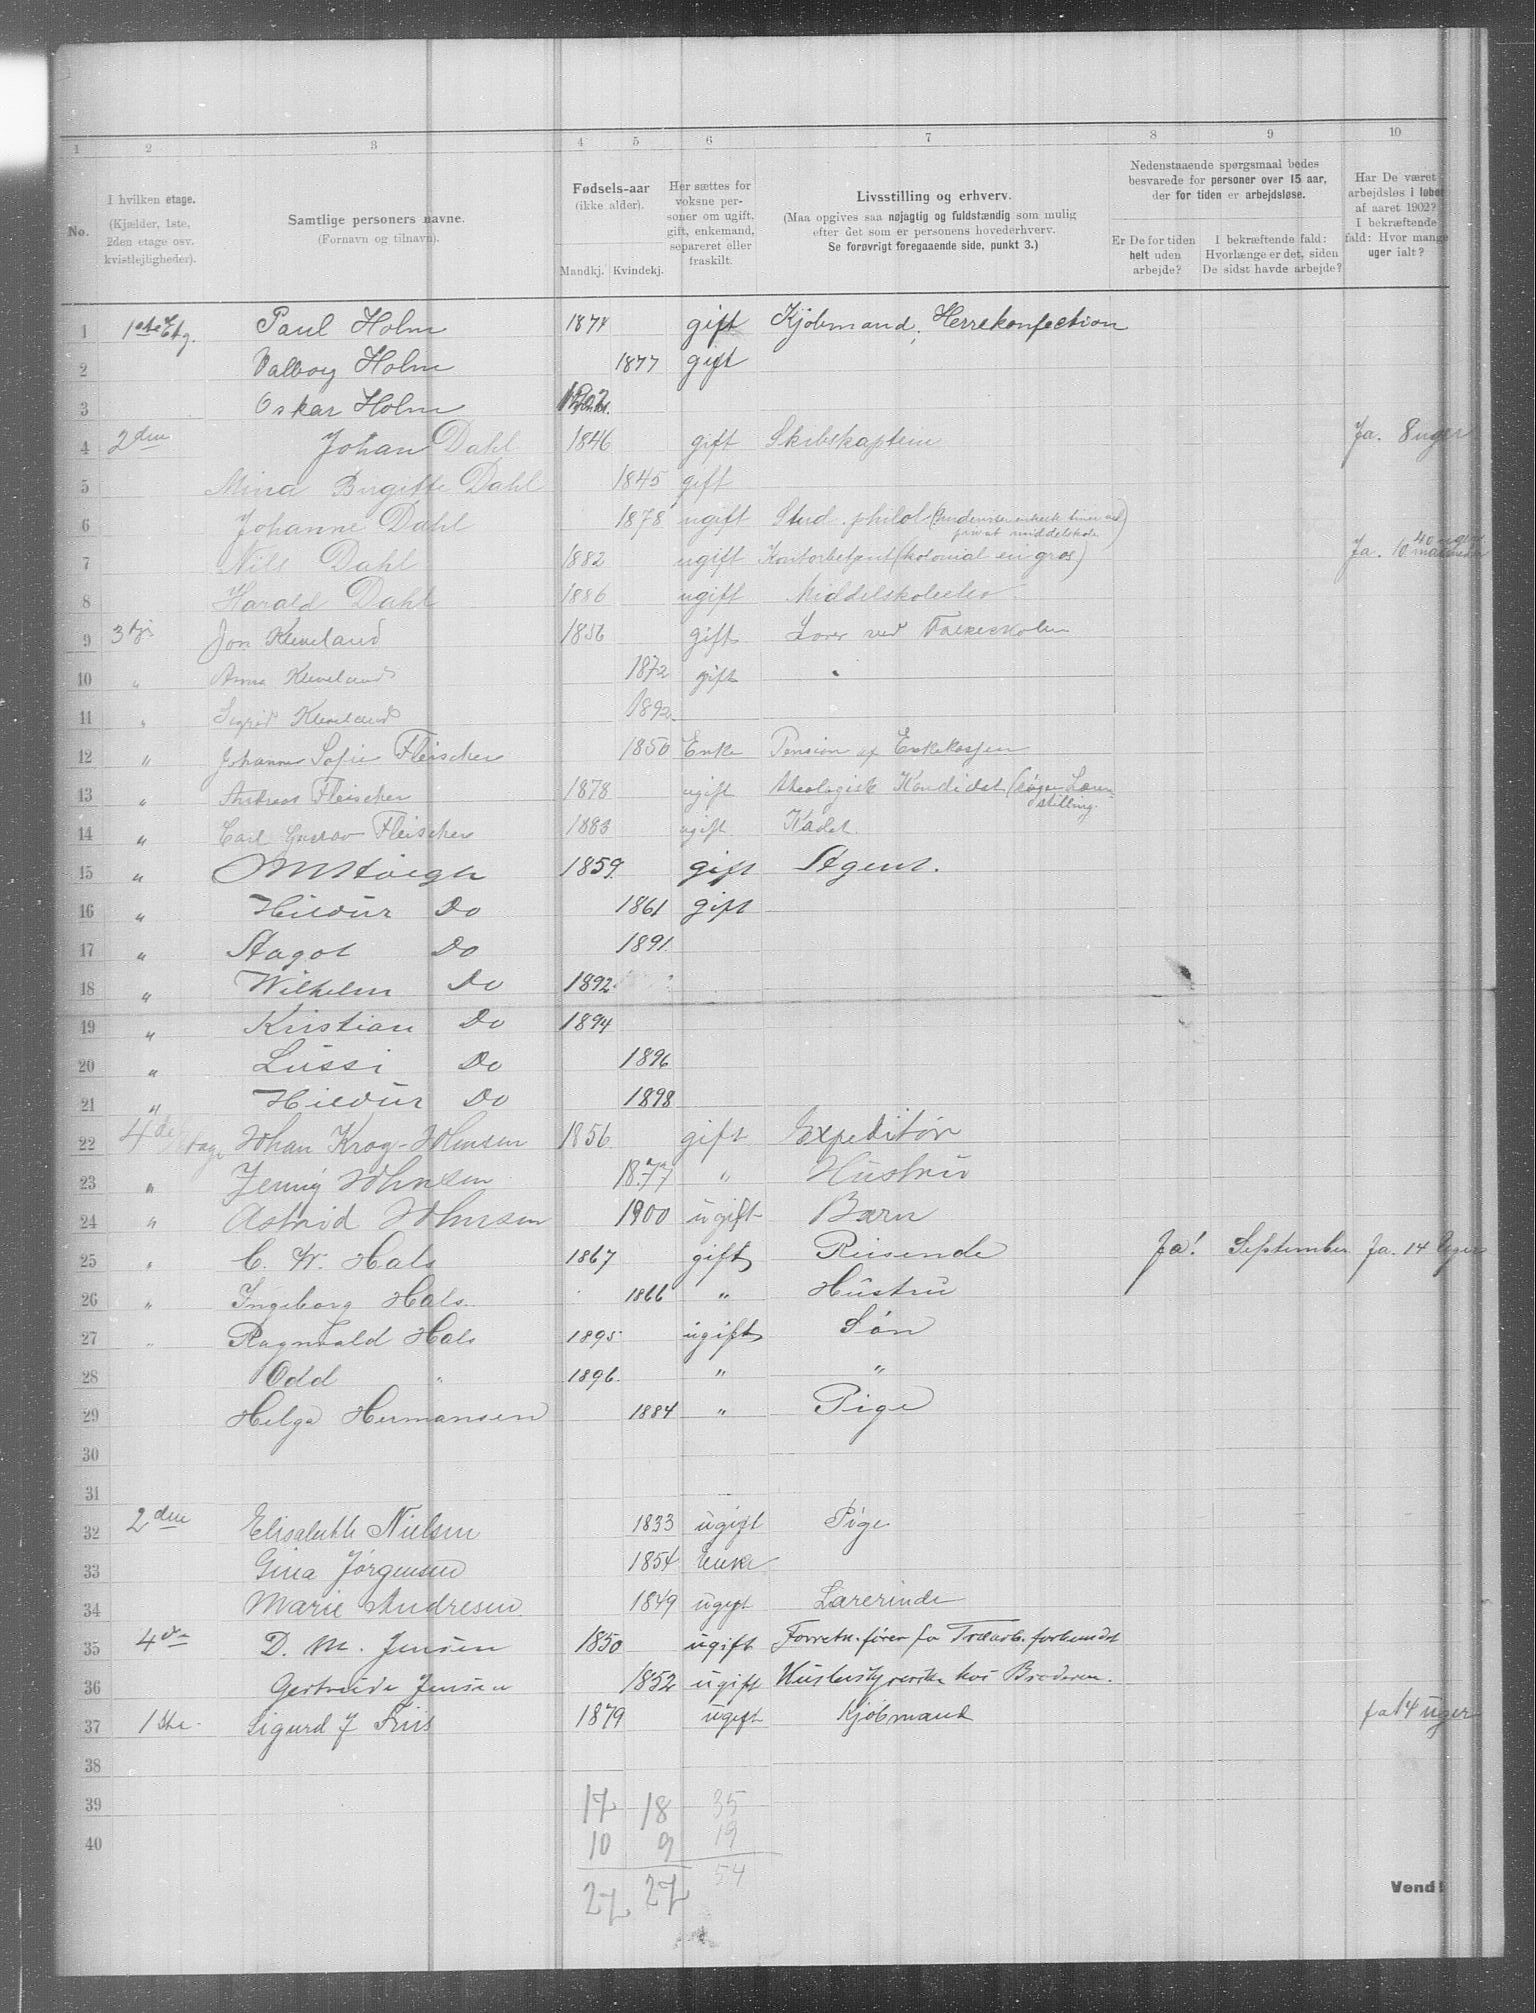 1 2 3 4 5 6 7 8 9 10
No.
I hvilken etage.
(Kjælder, 1ste,
2den etage osv.
kvistlejligheder).
Samtlige personers navne.
(Fornavn og tilnavn).
Fødsels-aar
(ikke alder).
Mandkj. Kvindekj.
Her sættes for
voksne per-
soner om ugift,
gift, enkemand,
separeret eller
fraskilt.
Livsstilling og erhverv.
(Maa opgives saa nøjagtig og fuldstændig som mulig
efter det som er personens hovederhverv.
Se forøvrigt foregaaende side, punkt 3.)
Nedenstaaende spørgsmaal bedes
besvarede for personer over 15 aar,
der for tiden er arbejdsløse.
Er De for tiden
helt uden
arbejde?
I bekræftende fald:
Hvorlænge er det, siden
De sidst havde arbejde?
Har De været
arbejdsløs i løbet
af aaret 1902?
I bekræftende
fald: Hvor mange
uger ialt?
1 1ste Etg. Paul Holm 1874 gift Kjøbmand, Herrekonfection
2 Valborg Holm 1877 gift
3 Oskar Holm 1902
4 2den Johan Dahl 1846 gift Skibskaptein Ja. 8 uger
5 Mina Birgitte Dahl 1845 gift
6 Johanne Dahl 1878 ugift Stud. philol (underviser enkelte timer ved
privat middelskole)
7 Nils Dahl 1882 ugift Kontorbetjent (kolonial en gros) Ja. 10 maaneder 40 uger
8 Harald Dahl 1886 ugift Middelskoleelev
9 3dje Jon Kleveland 1856 gift Lærer ved Folkeskolen
10 " Anna Kleveland 1872 gift
11 " Sigrid Kleveland 1892
12 " Johanne Sofie Fleischer 1850 Enke Pension af Enkekassen
13 " Andreas Fleischer 1878 ugift theologisk Kandidat (søger Lærer-
stilling.
14 " Carl Gustav Fleischer 1883 ugift Kadet
15 " 1859 gift Agent.
16 " Hildur Do 1861 gift
17 " Aagot Do 1891
18 " Wilhelm Do 1892
19 " Kristian Do 1894
20 " Lussi Do 1896
21 " Hildur Do 1898
22 4de Etage Johan Krog-Johnsen 1856 gift Expeditør
23 " Jenny Johnsen 1877 " Hustru
24 " Astrid Johnsen 1900 ugift Barn
25 " C. W. Hals 1867 gift Reisende Ja! September Ja. 14 Uger
26 " Ingeborg Hals 1866 " Hustru
27 " Ragnvald Hals 1895 ugift Søn
28 Odd " 1896. " "
29 Helga Hermansen 1884 " Pige
30
31
32 2den Elisabeth Nielsen 1833 ugift Pige
33 Gina Jørgensen 1854 Enke
34 Marie Andresen 1849 ugift Lærerinde
35 4de D. M. Jensen 1850 ugift Forretn.fører for Træarb.forbundet
36 Gertrude Jensen 1852 ugift Husbestyrerske hos Broderen.
37 1ste Sigurd J Friis 1879 ugift Kjøbmand ja 14 uger
38
39 17 18 35
40 10 9 19
27 27 54
Vend!